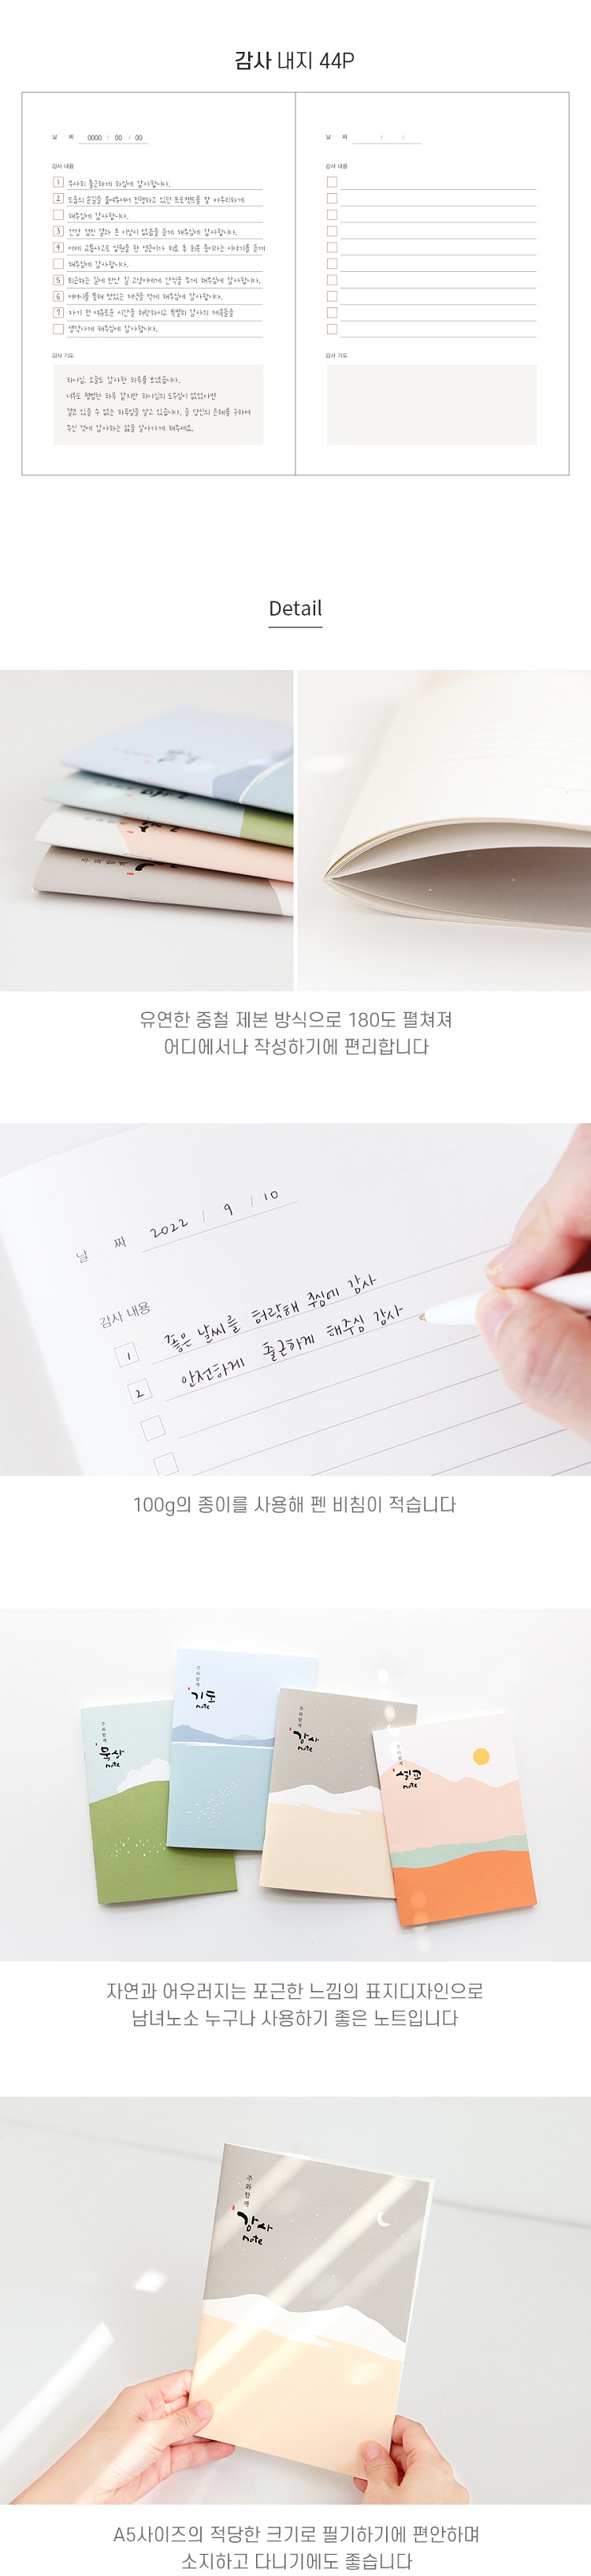 감사 내지 44P
날 짜 0000 / 00 / 00
감사 내용
1 무사히 출근하게 하심에 감사합니다.
2 도움의 손길을 붙여주셔서 진행하고 있던 프로젝트를 잘 마무리하게
해주심에 감사합니다.
3 건강 검진 결과 큰 이상이 없음을 듣게 해주심에 감사합니다.
4 어제 교통사고로 입원을 한 영은이가 치료 후 회복 중이라는 이야기를 듣게
해주심에 감사합니다.
5 퇴근하는 길에 만난 길 고양이에게 간식을 주게 해주심에 감사합니다.
6 어머니를 통해 맛있는 저녁을 먹게 해주심에 감사합니다.
7 자기 전 여유로운 시간을 허락하시고 특별히 감사의 제목들을
생각나게 해주심에 감사합니다.
감사 기도
하나님, 오늘도 감사한 하루를 보냈습니다.
너무도 평범한 하루 같지만 하나님의 도우심이 없었다면
결코 있을 수 없는 하루임을 알고 있습니다. 늘 당신의 은혜를 구하며
주신 것에 감사하는 삶을 살아가게 해주세요.
날 짜 / /
감사 내용
감사 기도
Detail
유연한 중철 제본 방식으로 180도 펼쳐져
어디에서나 작성하기에 편리합니다
날 짜 2022 / 9 / 10
감사 내용
1 좋은 날씨를 허락해 주심에 감사
2 안전하게 출근하게 해주심 감사
100g의 종이를 사용해 펜 비침이 적습니다
주와함께
묵상
note
주와함께
기도
note
주와함께
감사
note
주와함께
설교
note
자연과 어우러지는 포근한 느낌의 표지디자인으로
남녀노소 누구나 사용하기 좋은 노트입니다
주와함께
감사
note
A5사이즈의 적당한 크기로 필기하기에 편안하며
소지하고 다니기에도 좋습니다